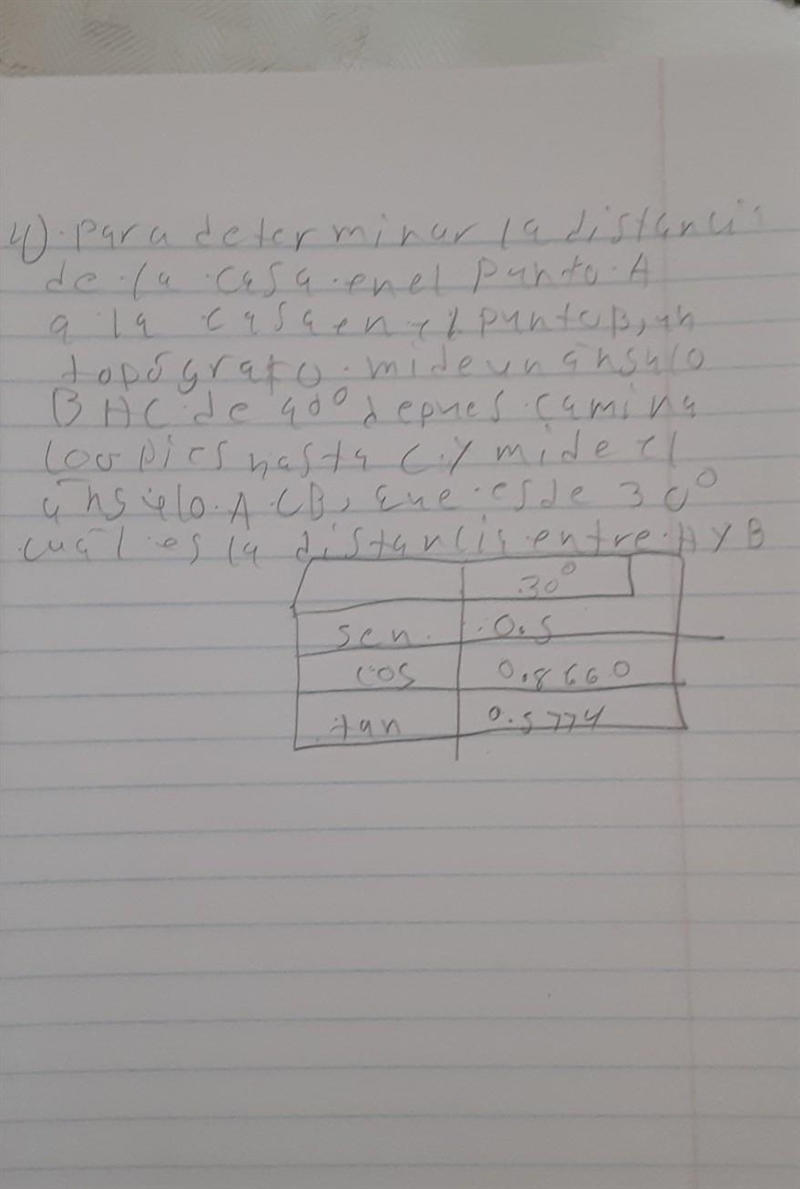 4). Para determinar la distancia
de la casa en el Punto A
a la casa en el punto B, un
topógrafo mide un ángulo
BAC de 40° depues camina
100 pies hasta C y mide el
ángulo A CB, que es de 30°
cuál es la distancia entre A y B
30°
sen 0.5
cos 0.8660
tan 0.5774